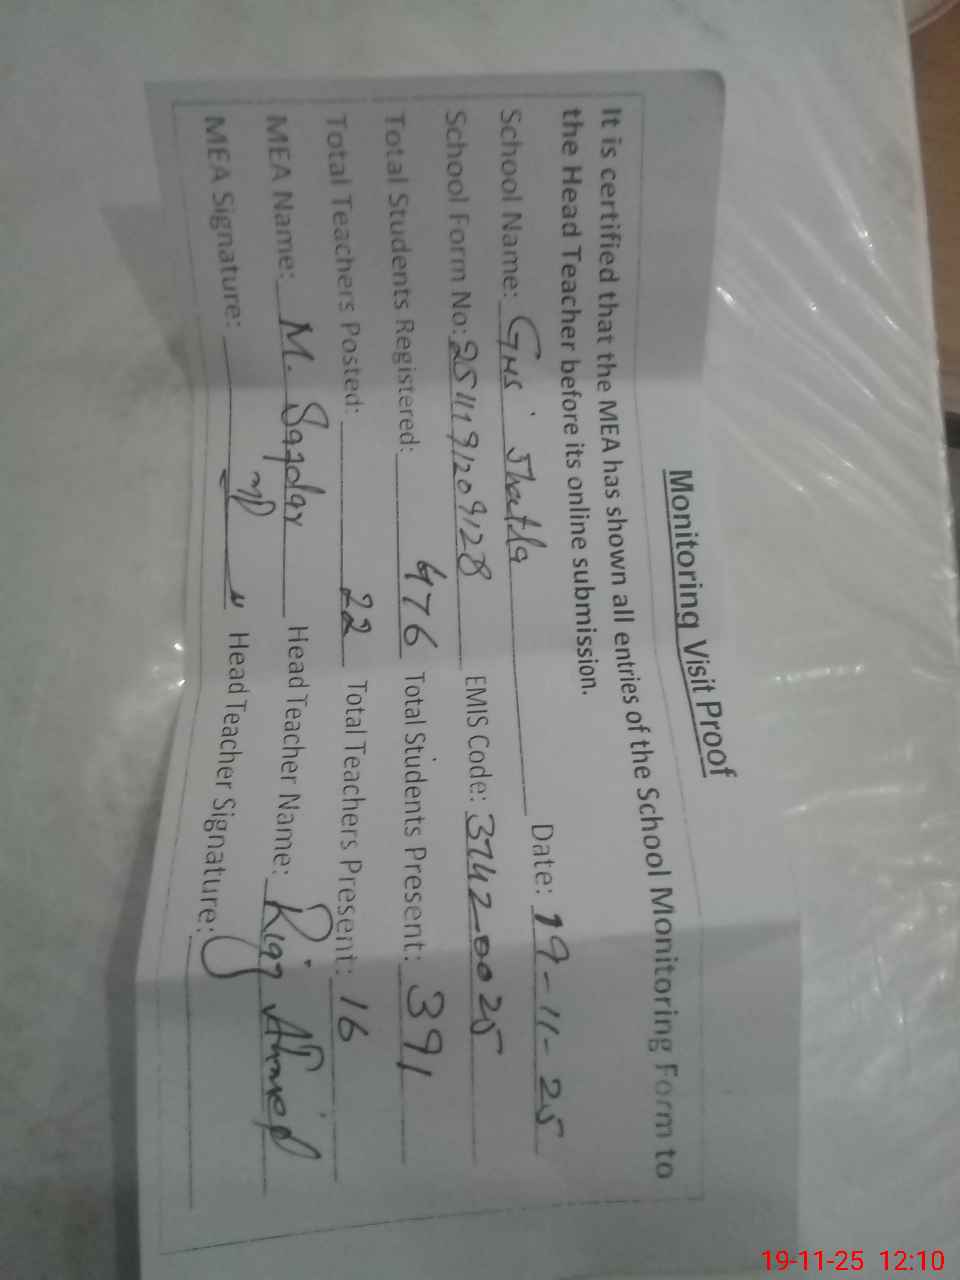 Monitoring Visit Proof
It is certified that the MEA has shown all entries of the School Monitoring Form to
the Head Teacher before its online submission.
School Name: GHS Shatla Date: 19-11-25
School Form No: 2511191209128 EMIS Code: 37420025
Total Students Registered: 476 Total Students Present: 391
Total Teachers Posted: 22 Total Teachers Present: 16
MEA Name: M. Safdar Head Teacher Name: Riaz Ahmed
MEA Signature: Head Teacher Signature:
19-11-25 12:10